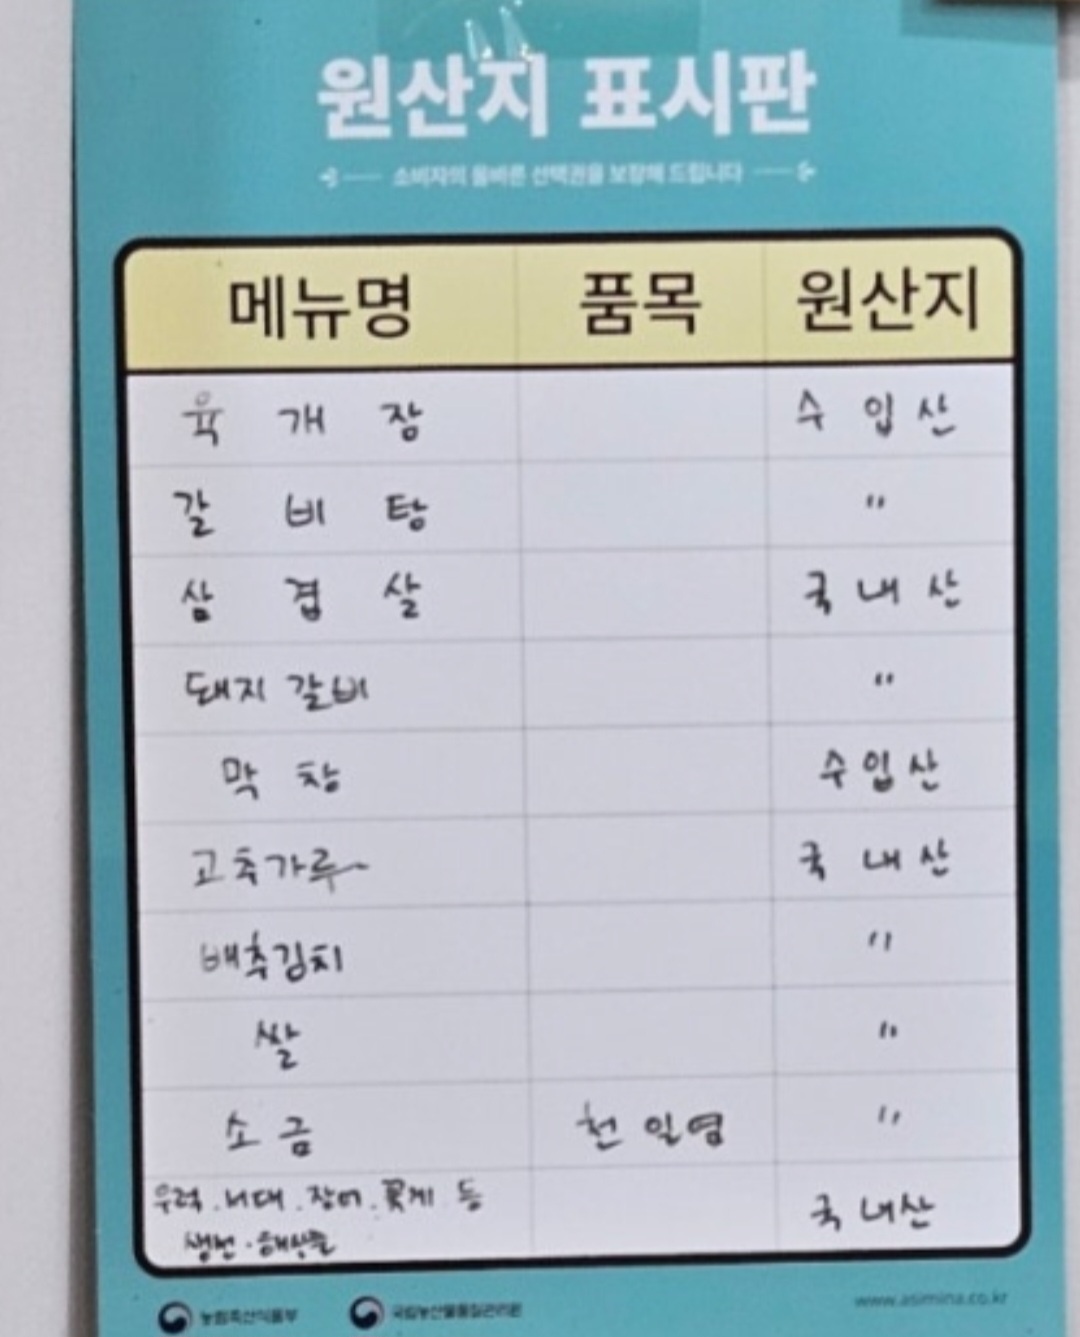 원산지 표시판
소비자의 올바른 선택권을 보장해 드립니다
메뉴명 품목 원산지
육 개 장 수 입 산
갈 비 탕 〃
삼 겹 살 국 내 산
돼지 갈비 〃
막 창 수입산
고축가루 국 내 산
배추김치 〃
쌀 〃
소 금 천 일염 〃
우럭.서대.장어.꽃게 등 국 내산
생선.해산물
농림축산식품부 국립농산물품질관리원
www.asimina.co.kr